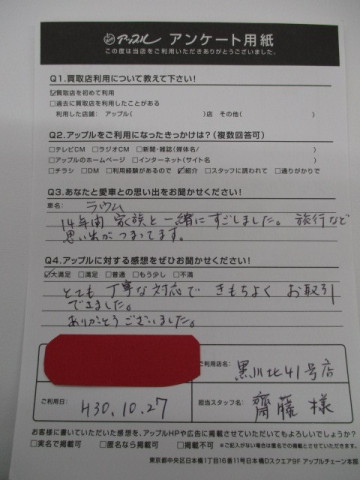 アップル アンケート用紙
この度は当店をご利用いただきありがとうございました。
Q1.買取店利用について教えて下さい!
☑買取店を初めて利用
□過去に買取店を利用したことがある
利用した店舗: アップル( )店 その他( )
Q2.アップルをご利用になったきっかけは?(複数回答可)
□テレビCM □ラジオCM □新聞・雑誌(媒体名/ )
□アップルのホームページ □インターネット(サイト名 )
□チラシ □DM □利用経験があるので ☑紹介 □スタッフに誘われて □通りがかりで
Q3.あなたと愛車との思い出をお聞かせください!
車名: ラウム
14年間 家族と一緒にすごしました。旅行など
思い出がつまってます。
Q4.アップルに対する感想をぜひお聞かせください!
☑大満足 □満足 □普通 □もう少し □不満
とても 丁寧な対応で きもちよく お取引
できました。
ありがとうございました。
ご利用店名: 黒川北41号店
ご利用日: H30.10.27
担当スタッフ名: 齋藤 様
お客様に書いていただいた感想を、アップルHPや広告に掲載させていただいてもよろしいでしょうか?
□実名で掲載可 □匿名なら掲載可 □掲載不可
東京都中央区日本橋1丁目16番11号日本橋Dスクエア5F アップルチェーン本部